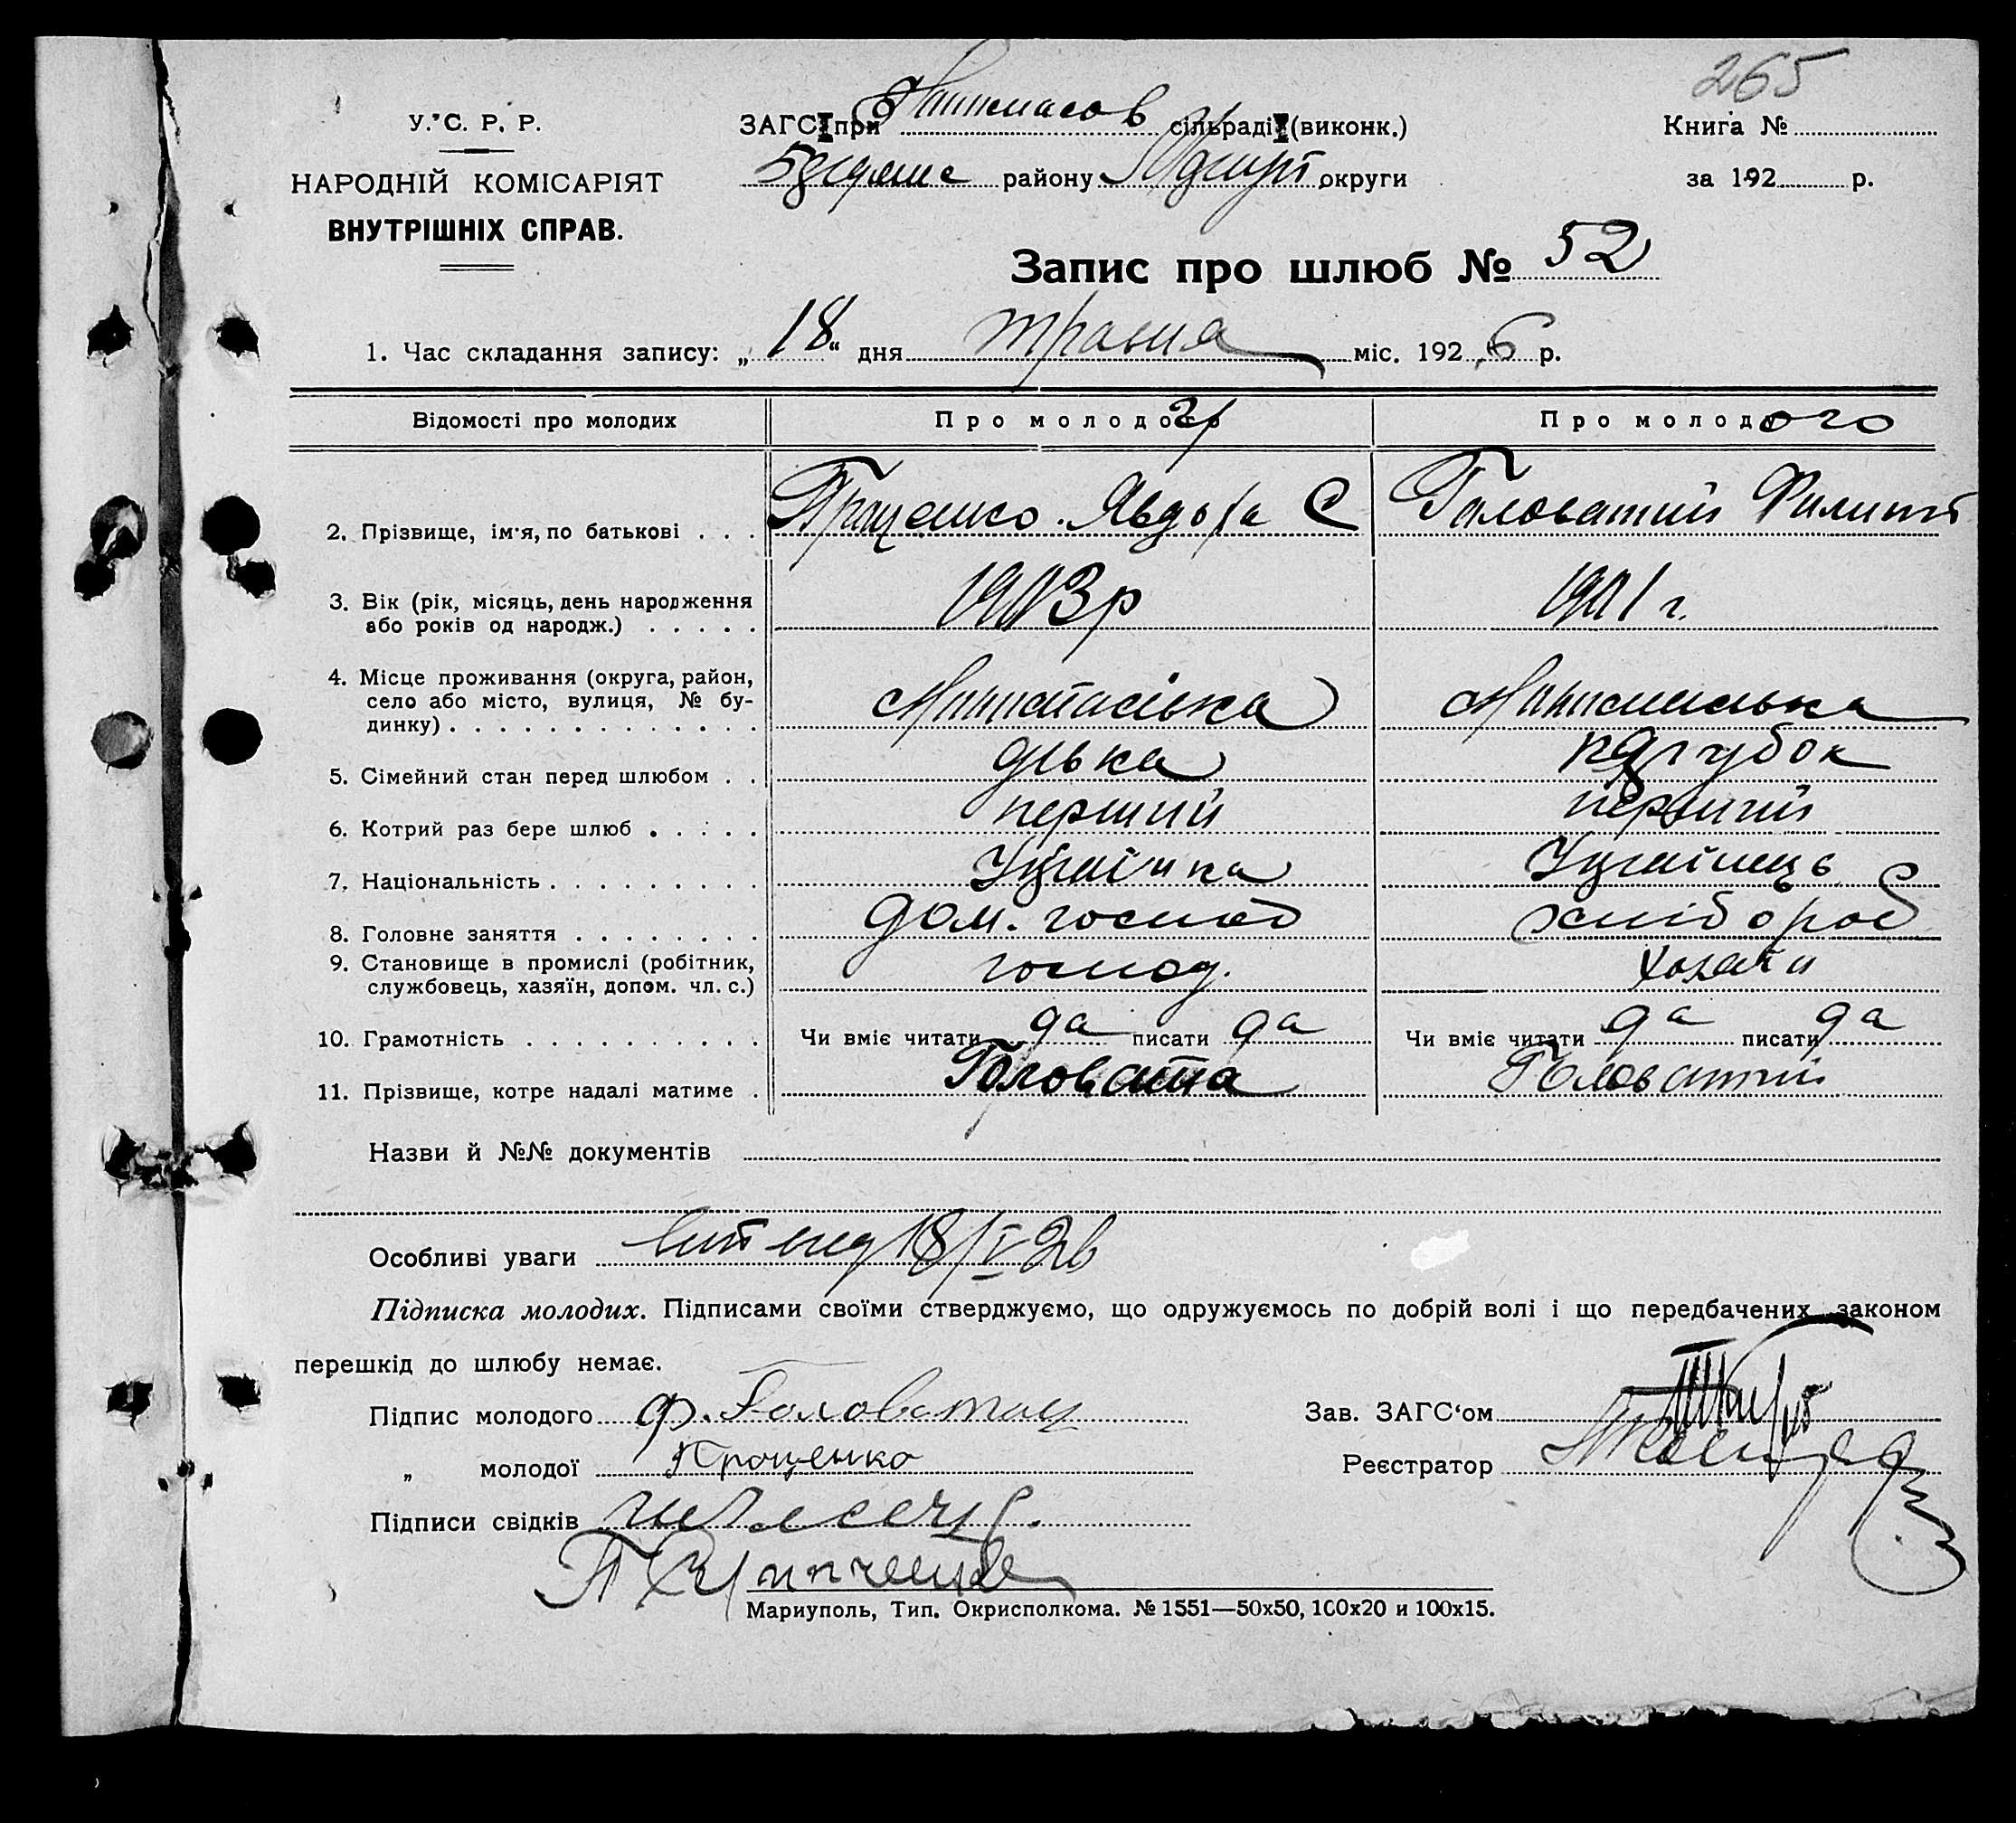 265
У. С. Р. Р.
НАРОДНІЙ КОМІСАРІЯТ
ВНУТРІШНІХ СПРАВ.
ЗАГС при сільраді (виконк.)
району округи
Книга №
за 192 р.
Запис про шлюб № 52
1. Час складання запису: „18“ дня травня міс. 1926 р.
Відомості про молодих
Про молодого
2. Прізвище, ім'я, по батькові . . . Проценко Явдоха С Головатий Филип
3. Вік (рік, місяць, день народження
або років од народж.) . . . . . 1903р 1901 г.
4. Місце проживання (округа, район,
село або місто, вулиця, № бу-
динку) . . . . . . . . . . . . .
5. Сімейний стан перед шлюбом . . дівка парубок
6. Котрий раз бере шлюб . . . . . перший перший
7. Національність . . . . . . . . . Українка Українець
8. Головне заняття . . . . . . . . дом. господ хлібороб
9. Становище в промислі (робітник,
службовець, хазяїн, допом. чл. с.) господ.
10. Грамотність . . . . . . . . . . Чи вміє читати да писати да Чи вміє читати да писати да
11. Прізвище, котре надалі матиме . Головата Головатий
Назви й №№ документів
Особливі уваги 18/V 26
Підписка молодих. Підписами своїми стверджуємо, що одружуємось по добрій волі і що передбачених законом
перешкід до шлюбу немає.
Підпис молодого Ф. Головатий
Зав. ЗАГС'ом
„ молодої Проценко
Реєстратор
Підписи свідків
Мариуполь, Тип. Окрисполкома. № 1551—50х50, 100х20 и 100х15.